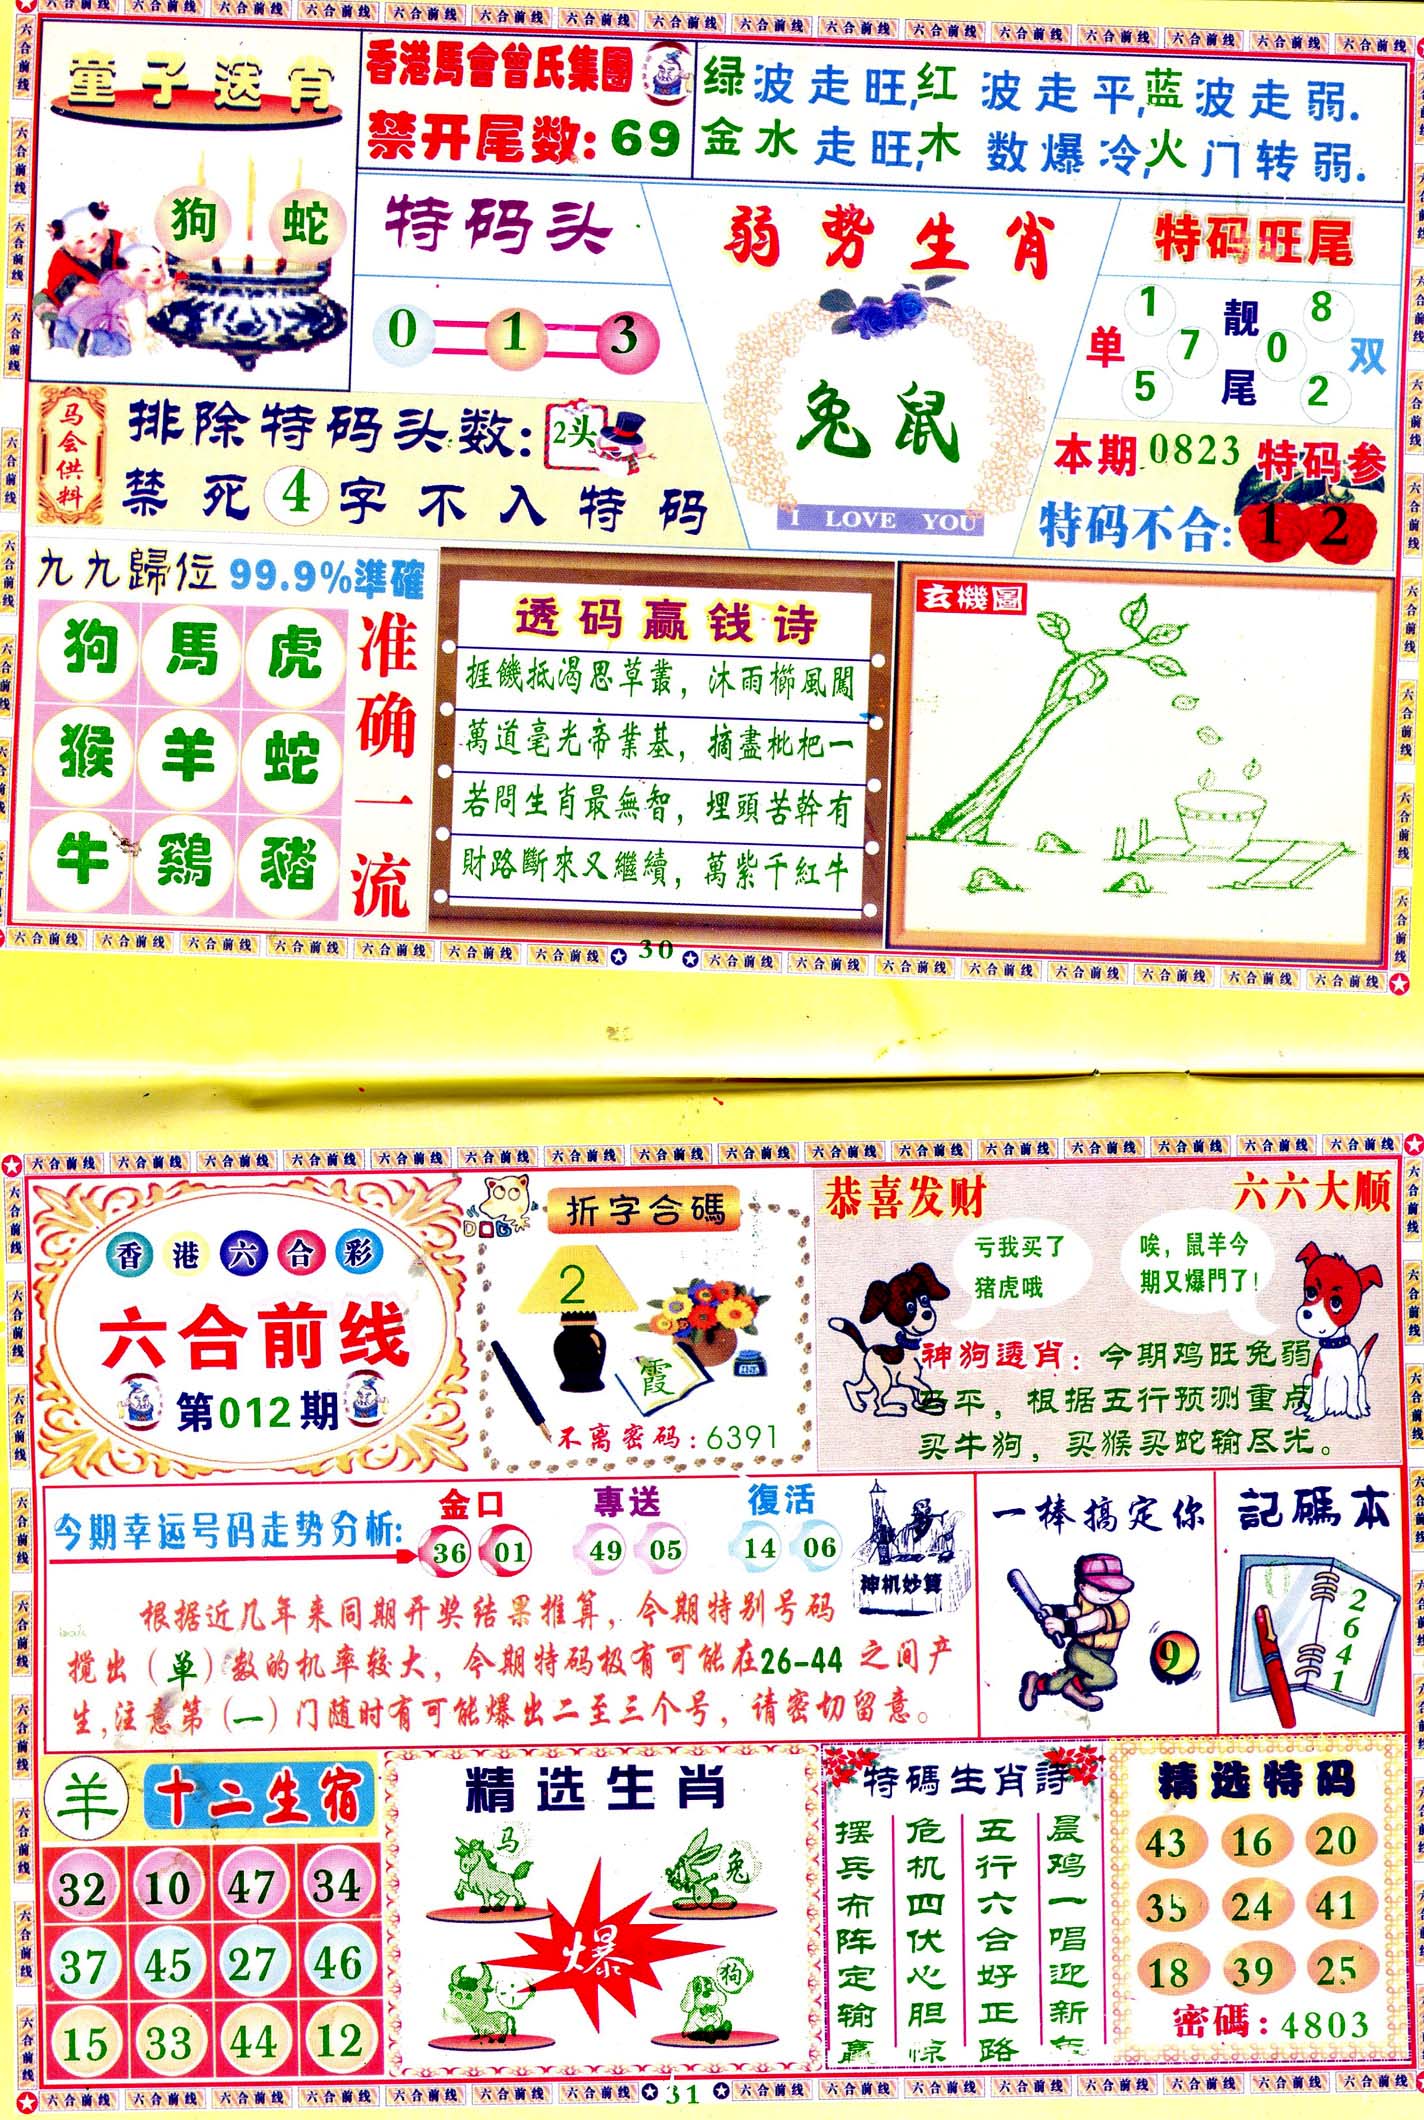 童子送肖
狗 蛇
香港馬會曾氏集團
禁开尾数: 69
绿波走旺,红波走平,蓝波走弱.
金水走旺,木数爆冷,火门转弱.
特码头
0 1 3
弱势生肖
兔鼠
I LOVE YOU
特码旺尾
单 1 7 5 靓尾 8 0 2 双
马会供料
排除特码头数: 2头
禁死4字不入特码
本期0823特码参
特码不合: 1 2
九九歸位 99.9%準確
狗 馬 虎
猴 羊 蛇
牛 鷄 豬
准确一流
透码赢钱诗
捱饑抵渴思草叢，沐雨櫛風闖
萬道毫光帝業基，摘盡枇杷一
若問生肖最無智，埋頭苦幹有
財路斷來又繼續，萬紫千紅牛
玄機圖
六合前线
30
香港六合彩
六合前线
第012期
DOG
折字合碼
2
霞
不离密码: 6391
恭喜发财
六六大顺
亏我买了
猪虎哦
唉，鼠羊今
期又爆門了!
神狗透肖: 今期鸡旺兔弱
马平，根据五行预测重点
买牛狗，买猴买蛇输尽光。
今期幸运号码走势分析:
金口 36 01
專送 49 05
復活 14 06
神机妙算
根据近几年来同期开奖结果推算，今期特别号码
搅出（单）数的机率较大，今期特码极有可能在26-44之间产
生,注意第（一）门随时有可能爆出二至三个号，请密切留意。
一棒搞定你
9
記碼本
2641
羊 十二生宿
32 10 47 34
37 45 27 46
15 33 44 12
精选生肖
马 兔
爆
狗
特碼生肖詩
晨鸡一唱迎新年
五行六合好正路
危机四伏心胆惊
摆兵布阵定输赢
精选特码
43 16 20
35 24 41
18 39 25
密碼: 4803
六合前线
31